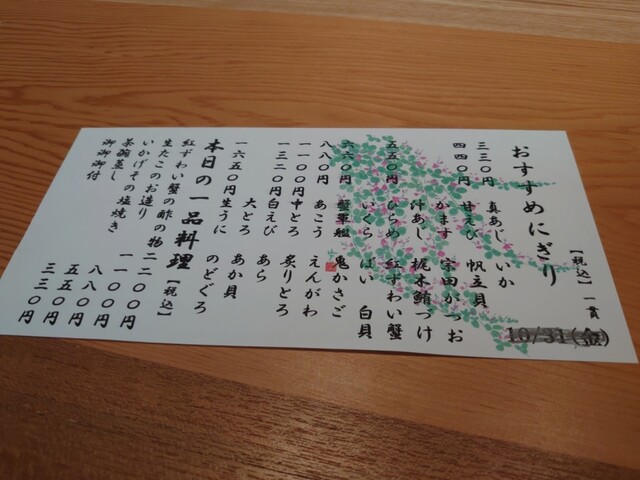 おすすめにぎり
【税込】 一貫
10/31(金)
三三〇円 真あじ いか
四四〇円 甘えび 帆立貝
かます 宗田がつお
〆あじ 梶木鮪づけ
五五〇円 ひらめ 紅ずわい蟹
いくら ばい 白貝
六六〇円 蟹軍艦 鬼かさご
八八〇円 あこう えんがわ
一一〇〇円 中とろ 炙りどろ
一三二〇円 白えび あら
大とろ あか貝
一六五〇円 生うに のどぐろ
本日の一品料理 【税込】
紅ずわい蟹の酢の物 二二〇〇円
生たこのお造り 一一〇〇円
いかげその塩焼き 八八〇円
茶碗蒸し 五五〇円
御付 三三〇円